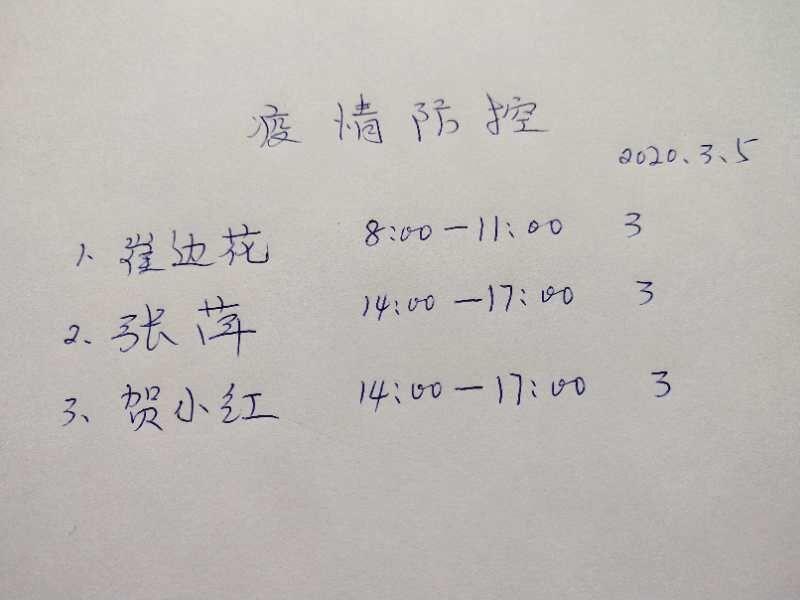 疫情防控
2020.3.5
1、崔边花 8:00—11:00 3
2、张萍 14:00—17:00 3
3、贺小红 14:00—17:00 3